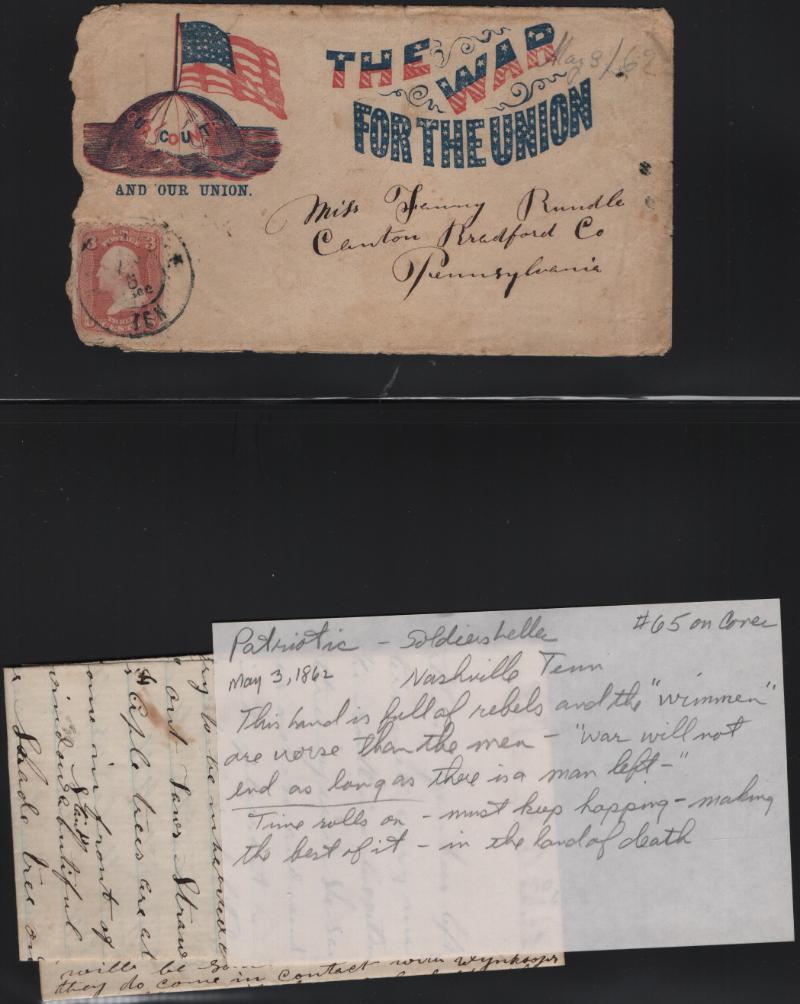 THE WAR
FOR THE UNION
May 3/62
OUR COUNT
AND OUR UNION.
Miss Fanny Rundle
Canton Bradford Co
Pennsylvania
U S POSTAGE
3
THREE
CENTS
TEN
Patriotic - Soldiers
#65 on Cover
May 3, 1862 Nashville Tenn
This land is full of rebels and the "wimmen"
are worse than the men - "War will not
end as long as there is a man left -"
Time rolls on - must keep hopping - making
the best of it - in the land of death
to be
out Straw
trees are at
in front of
Stands
butiful
Shade tree on
will be
they do come in contact with Wynkoops